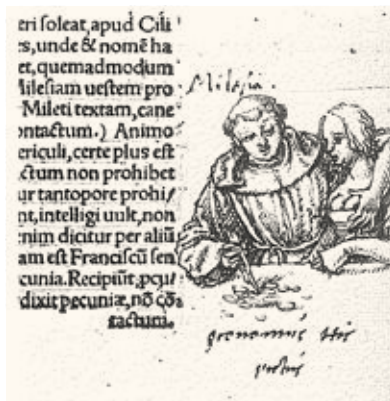 eri soleat, apud Cili
s, unde & nomẽ ha
et, quemadmodum
Milesiam uestem pro
Mileti textam, cane
ontactum.) Animo
ericuli, certe plus est
ctum non prohibet
ur tantopore prohi/
nt, intelligi uult, non
enim dicitur per aliũ
am est Franciscũ sen
cunia. Recipiũt, pcu/
dixit pecuniæ, nõ cõ
tactum.
Milesia.